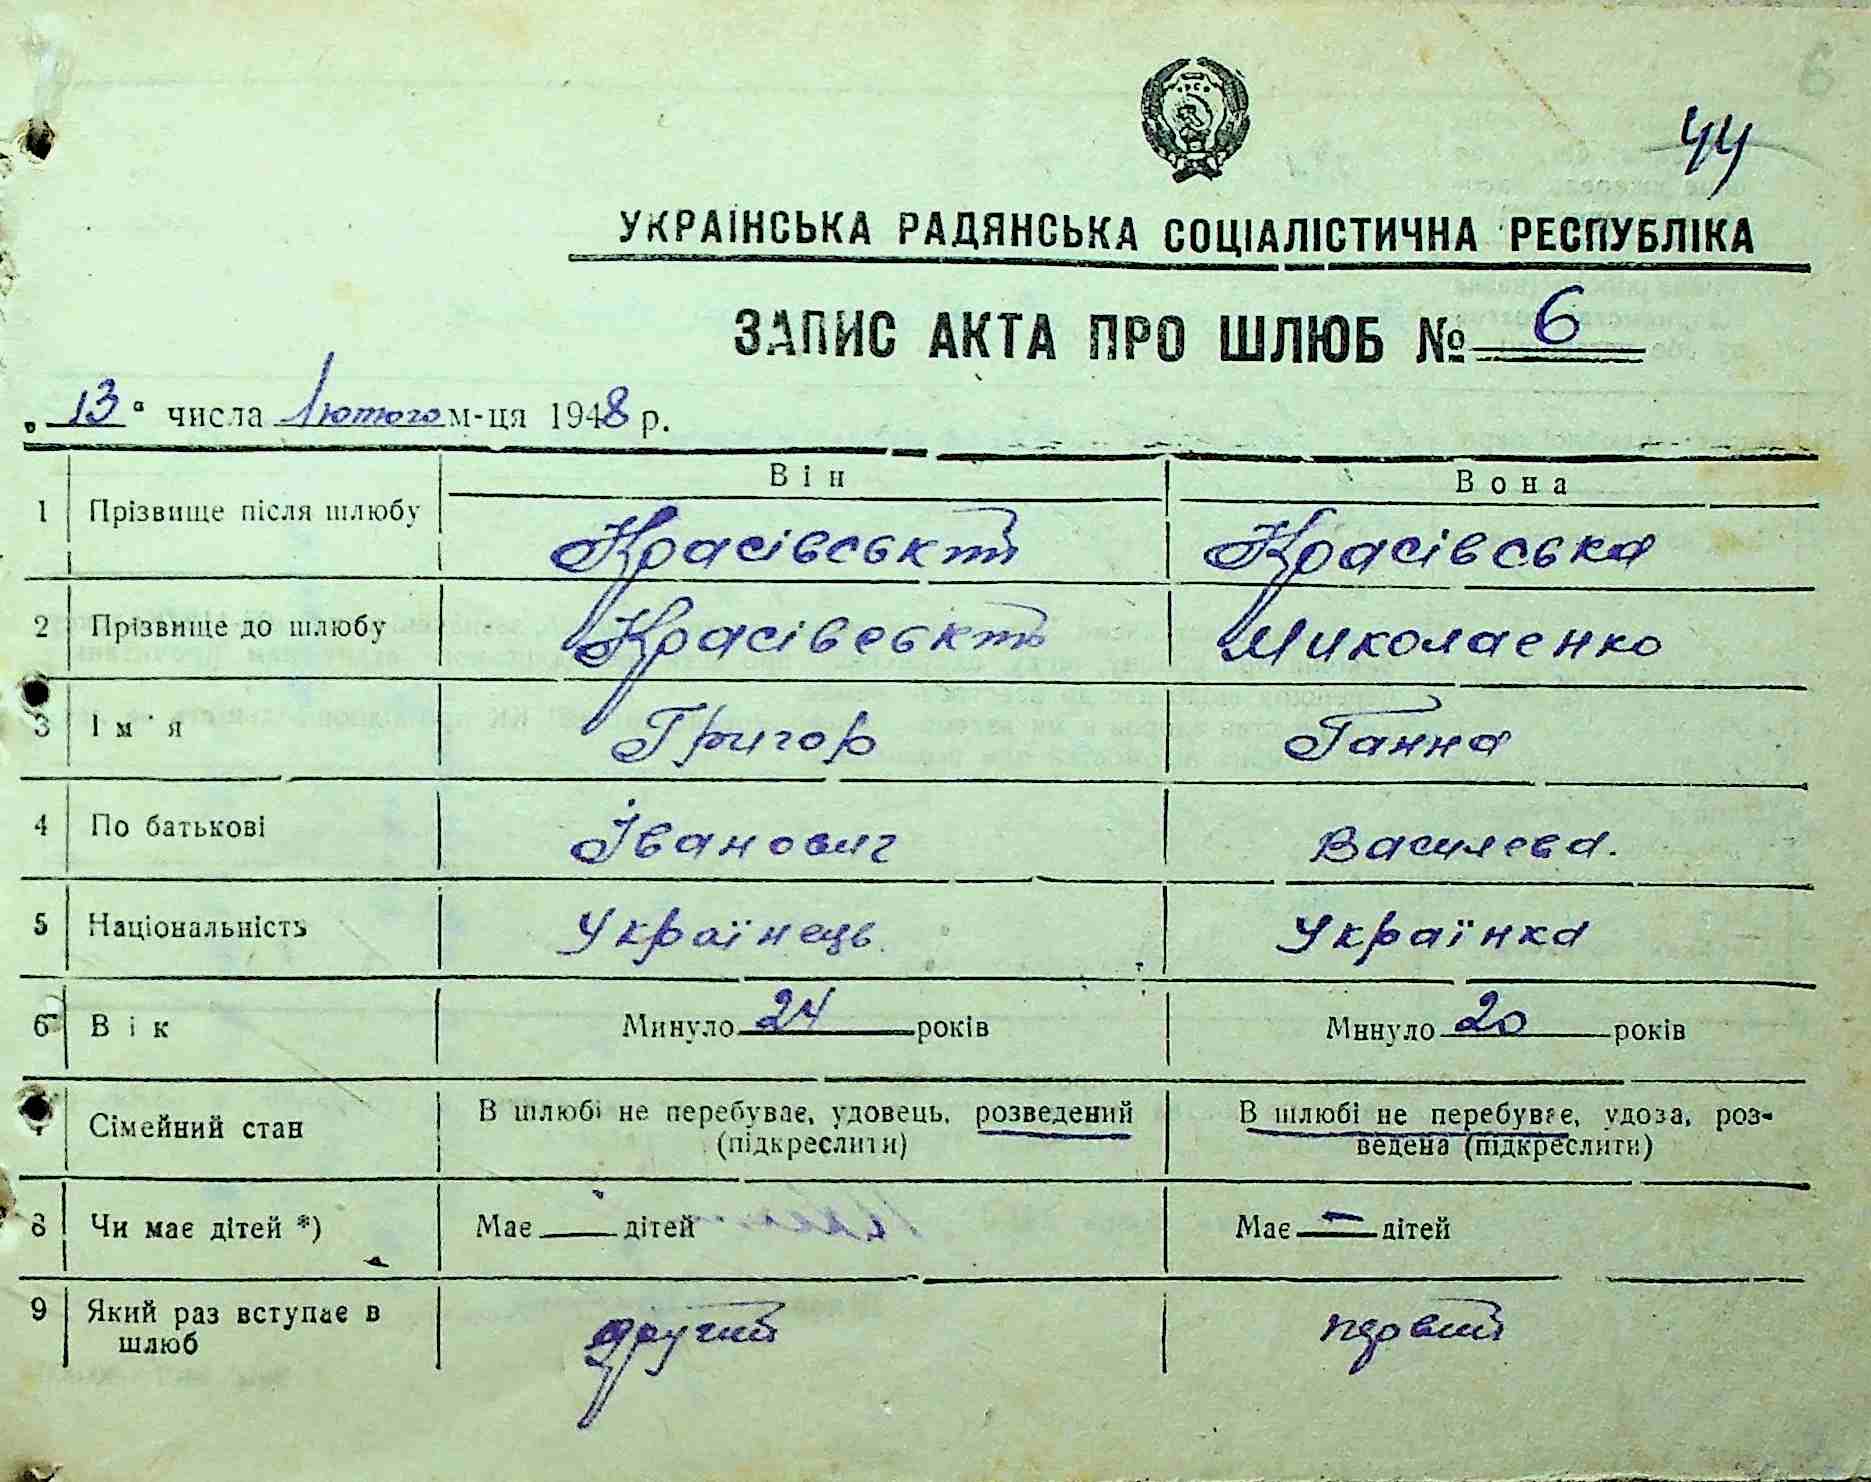 6
44
УКРАЇНСЬКА РАДЯНСЬКА СОЦІАЛІСТИЧНА РЕСПУБЛІКА
ЗАПИС АКТА ПРО ШЛЮБ № 6
„13“ числа Лютого м-ця 1948 р.
Він Вона
1 Прізвище після шлюбу Красівський Красівська
2 Прізвище до шлюбу Красівський Миколаенко
3 Ім'я Григор Ганна
4 По батькові Іванович Василева.
5 Національність Українець Українка
6 Вік Минуло 24 років Минуло 20 років
7 Сімейний стан В шлюбі не перебуває, удовець, розведений (підкреслити) В шлюбі не перебуває, удова, роз-
ведена (підкреслити)
8 Чи має дітей *) Має дітей Має — дітей
9 Який раз вступає в шлюб другий первий